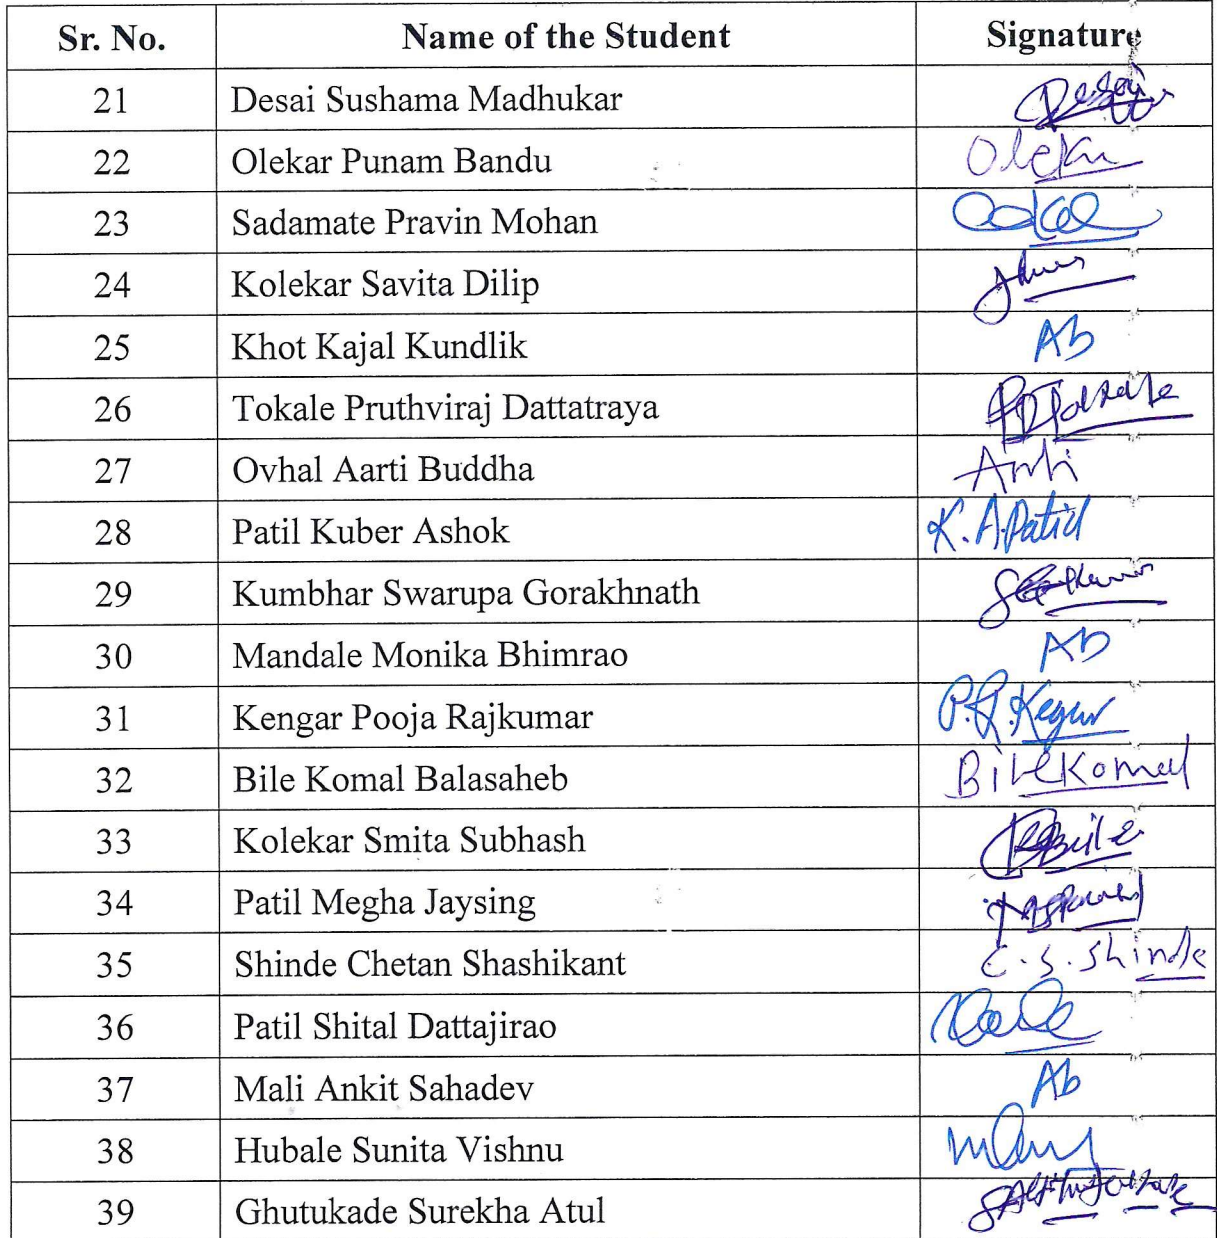 Sr. No. Name of the Student Signature
21 Desai Sushama Madhukar Desai
22 Olekar Punam Bandu Olekar
23 Sadamate Pravin Mohan
24 Kolekar Savita Dilip
25 Khot Kajal Kundlik Ab
26 Tokale Pruthviraj Dattatraya
27 Ovhal Aarti Buddha Arti
28 Patil Kuber Ashok K. A. Patil
29 Kumbhar Swarupa Gorakhnath
30 Mandale Monika Bhimrao Ab
31 Kengar Pooja Rajkumar
32 Bile Komal Balasaheb Bile Komal
33 Kolekar Smita Subhash
34 Patil Megha Jaysing
35 Shinde Chetan Shashikant C. S. Shinde
36 Patil Shital Dattajirao
37 Mali Ankit Sahadev Ab
38 Hubale Sunita Vishnu
39 Ghutukade Surekha Atul